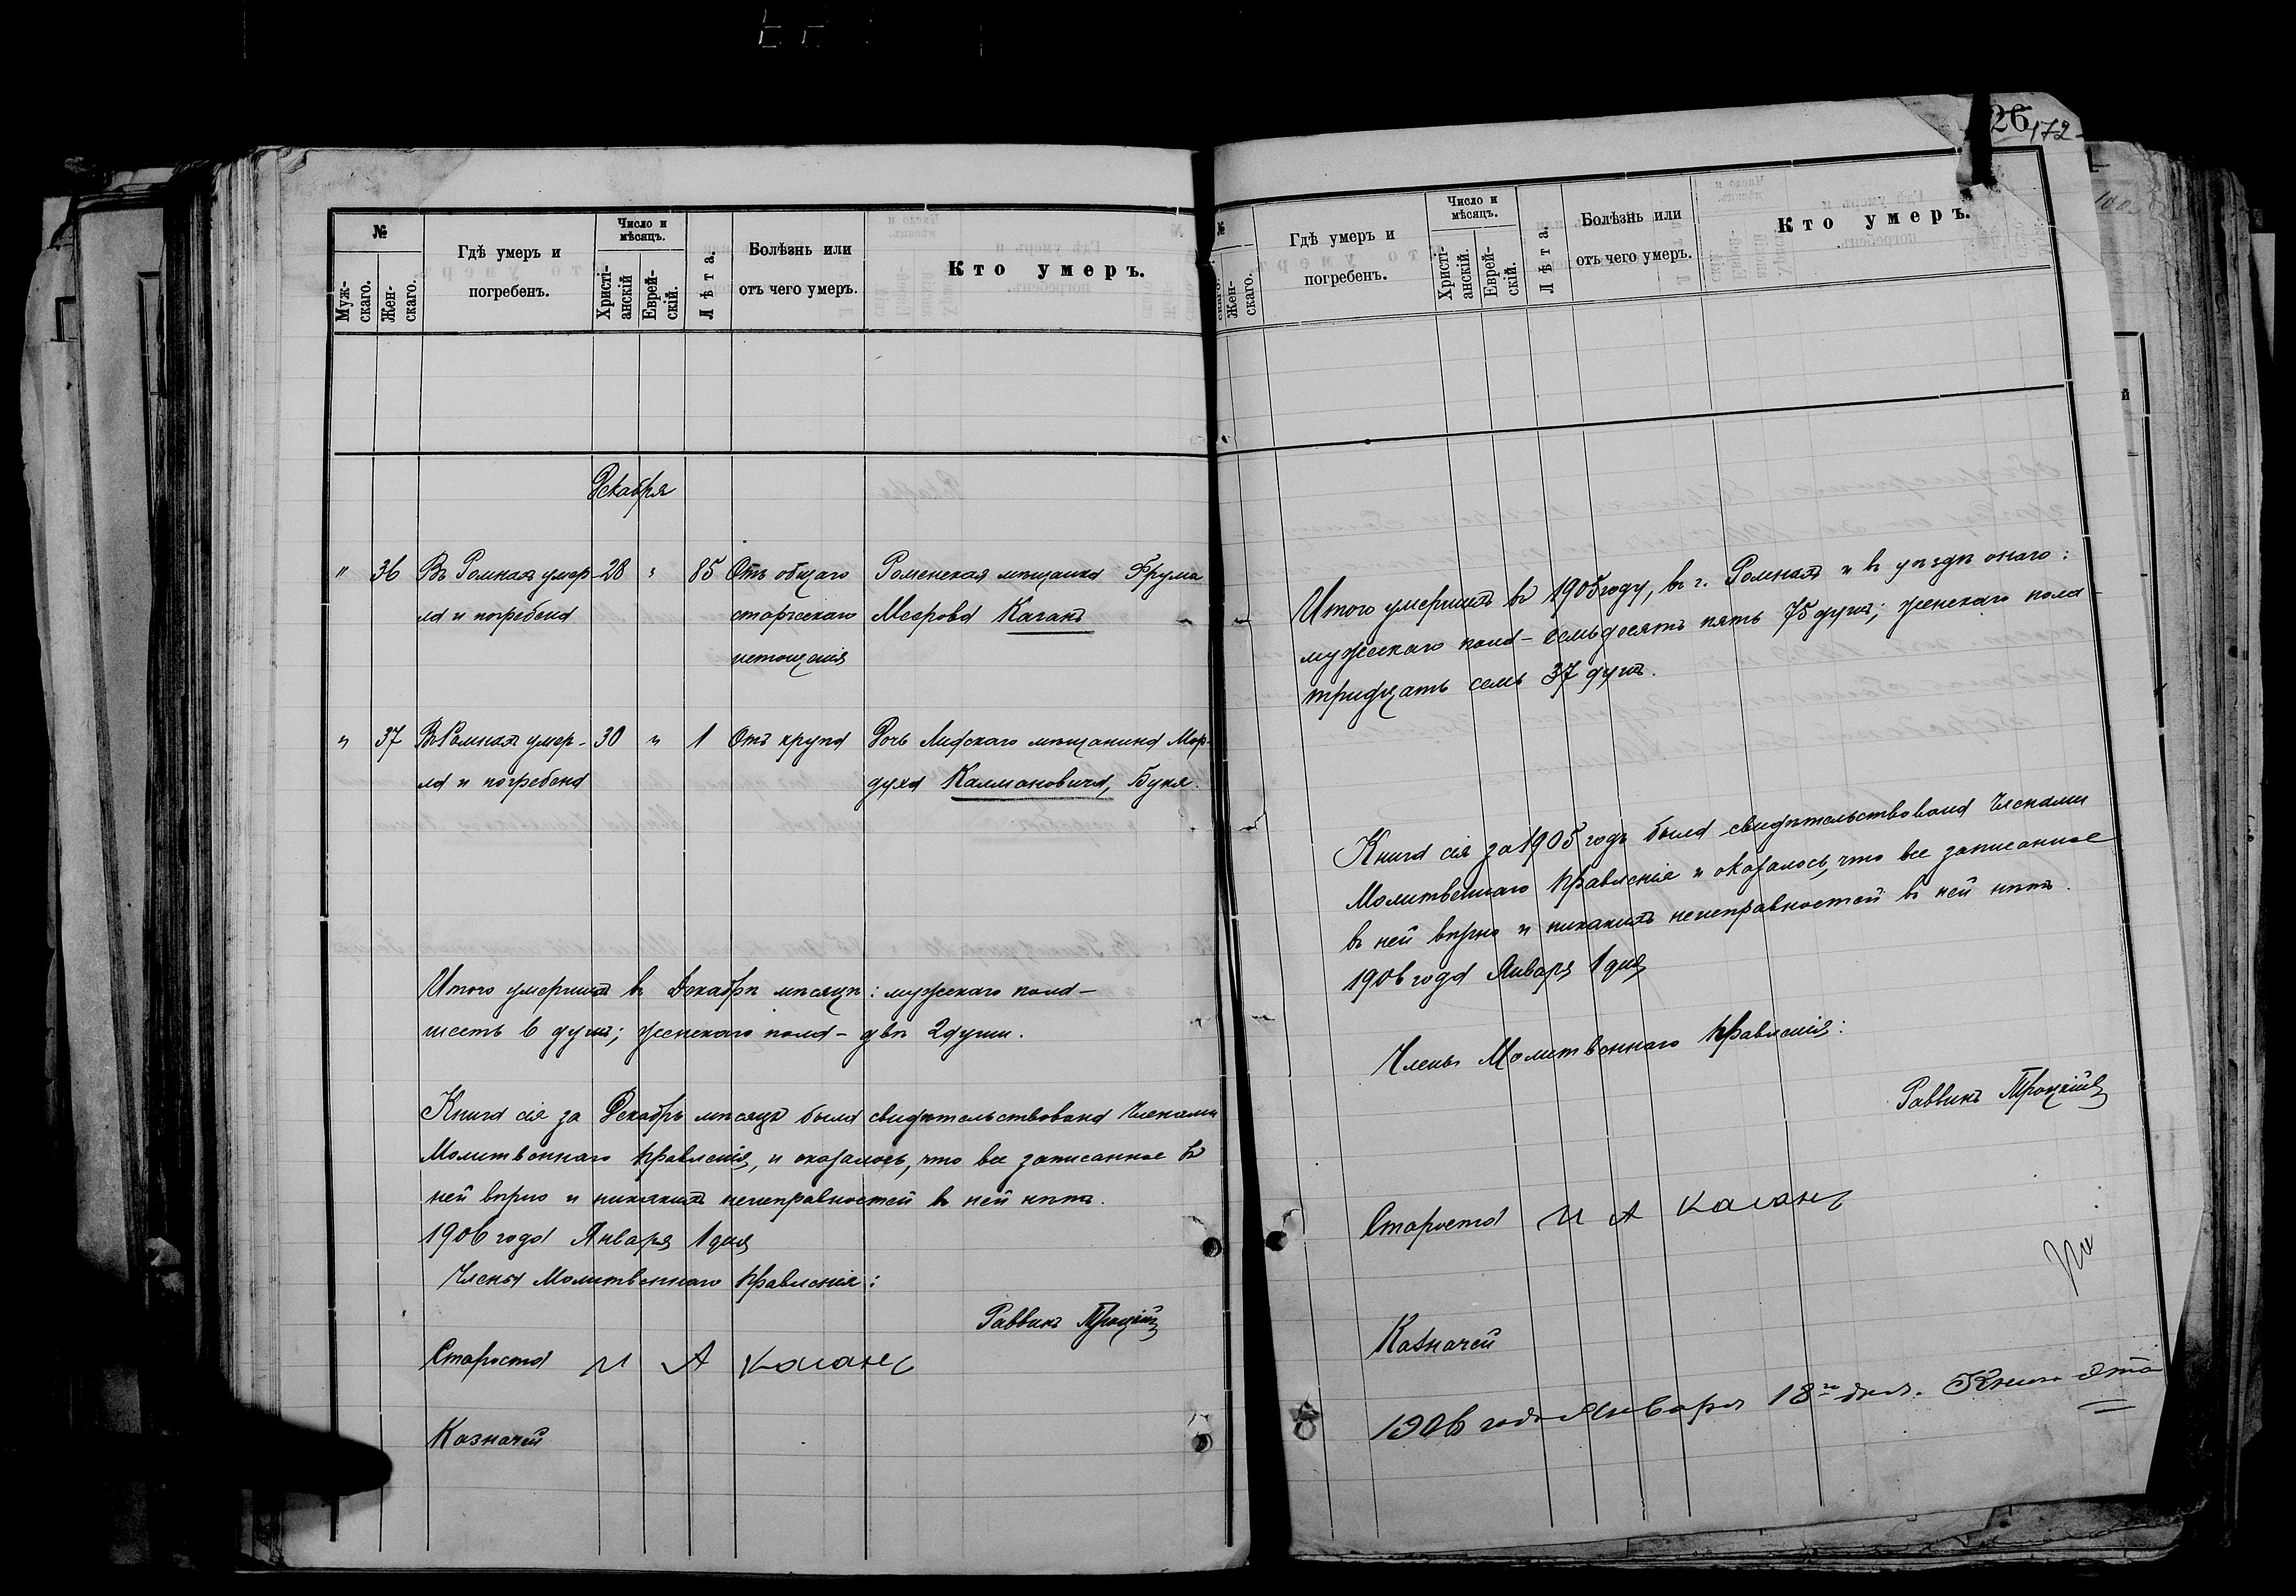 №
Муж-
скаго.
Жен-
скаго.
Гдѣ умеръ и
погребенъ.
Число и
мѣсяцъ.
Христі-
анскій
Еврей-
скій.
Лѣта.
Болѣзнь или
отъ чего умеръ.
Кто умеръ.
Декабря
" 36 Въ Ромнахъ умер- 28 " 85 Отъ общаго Роменская мѣщанка Фрума
ла и погребена старческаго Меерова Каганъ
истощенія
" 37 Въ Ромнахъ умер- 30 " 1 Отъ крупа Дочь Лидскаго мѣщанина Мор-
ла и погребена духа Калмановича, Буня.
Итого умершихъ въ Декабрѣ мѣсяцѣ: мужескаго пола –
шесть 6 душъ; женскаго пола – двѣ 2 души.
Книга сія за Декабрь мѣсяцъ была свидѣтельствована Членами
Молитвеннаго Правленія, и оказалось, что все записанное въ
ней вѣрно и никакихъ неисправностей въ ней нѣтъ.
1906 года Января 1 дня
Члены Молитвеннаго Правленія:
Раввинъ Троцкій
Староста И А Каганъ
Казначей
26
172
№
скаго.
Жен-
скаго.
Гдѣ умеръ и
погребенъ.
Число и
мѣсяцъ.
Христі-
анскій.
Еврей-
скій.
Лѣта.
Болѣзнь или
отъ чего умеръ.
Кто умеръ.
Итого умершихъ въ 1905 году, въ г. Ромнахъ и въ уѣздѣ онаго:
мужескаго пола – семьдесятъ пять 75 душъ; женскаго пола –
тридцать семь 37 душъ.
Книга сія за 1905 годъ была свидѣтельствована Членами
Молитвеннаго Правленія и оказалось, что все записанное
въ ней вѣрно и никакихъ неисправностей въ ней нѣтъ.
1906 года Января 1 дня
Члены Молитвеннаго Правленія:
Раввинъ Троцкій
Староста И А Каганъ
Казначей
1906 года Января 18го дня. Книга эта